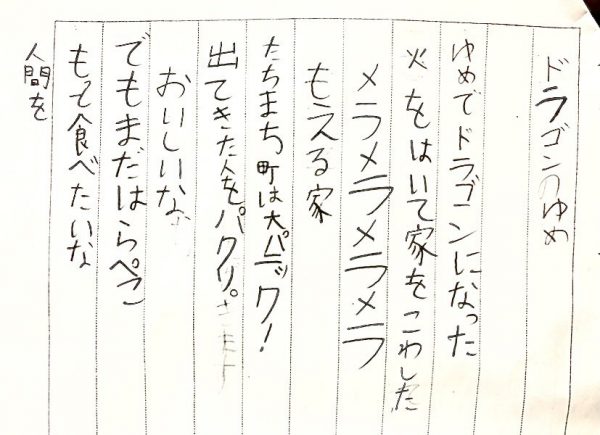 ドラゴンのゆめ
ゆめでドラゴンになった
火をはいて家をこわした
メラメラメラメラメラ
もえる家
たちまち町は大パニック!
出てきた人をパクリ。
おいしいな
でもまだはらぺこ
もっと食べたいな
人間を